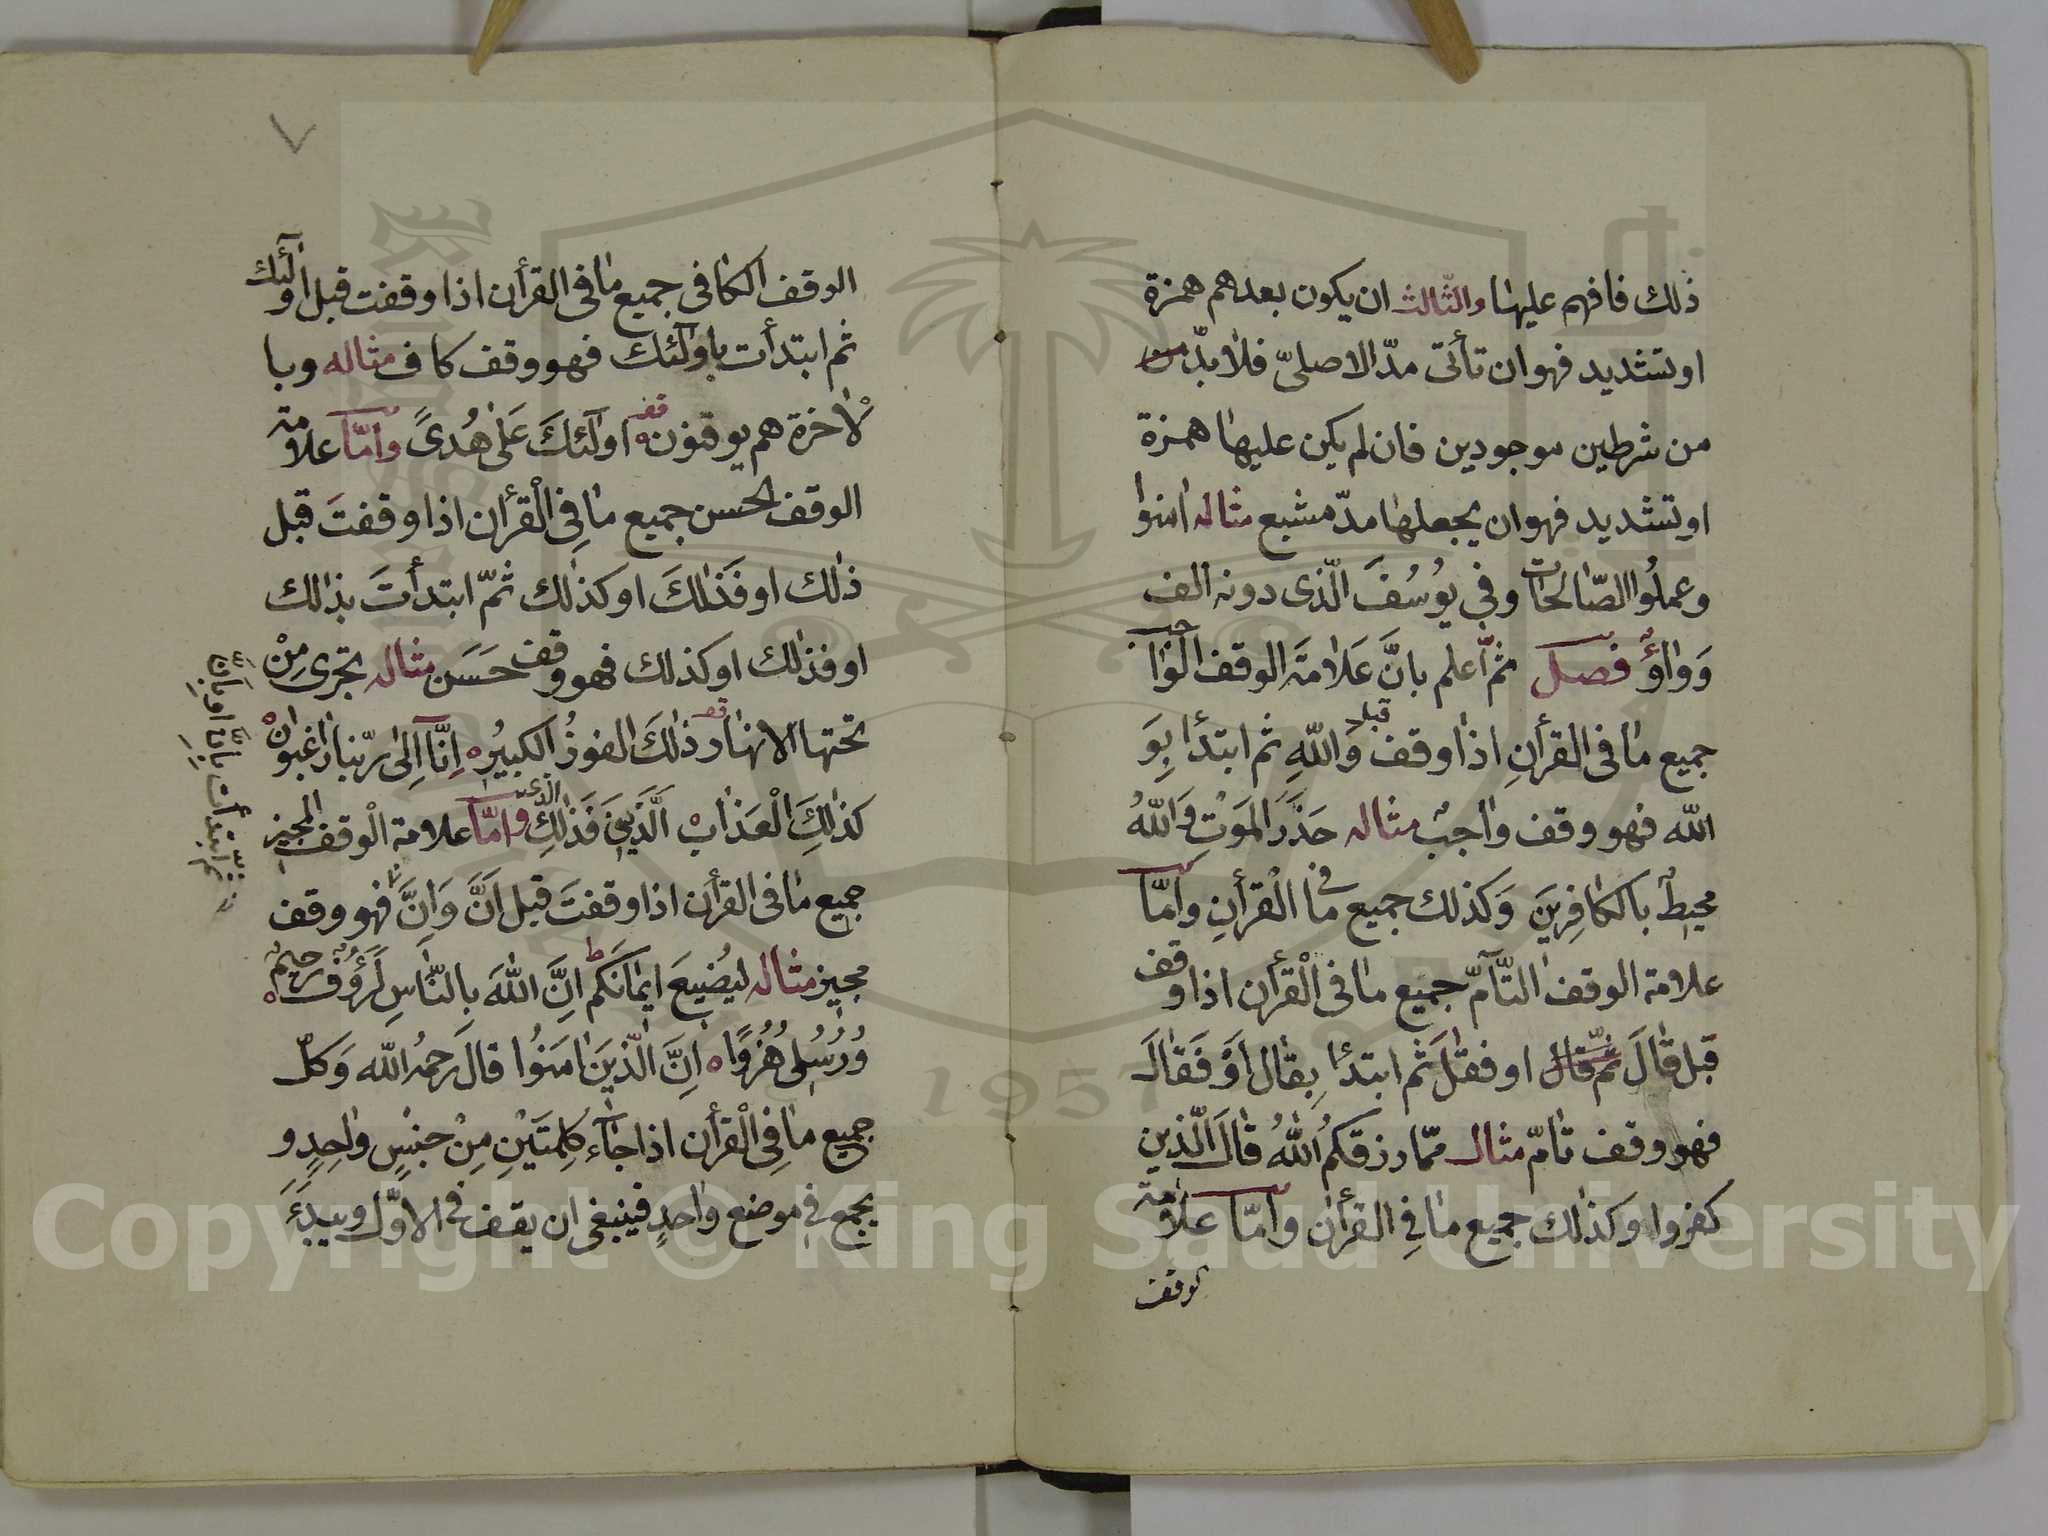 ذلك فافهم عليها والثّالث ان يكون بعدهم همزة
او تشديد فهو ان تأتى مدّ الاصلىّ فلا بدّ من
من شرطين موجودين فان لم يكن عليها همزة
او تشديد فهو ان يجعلها مدّ مشبع مثاله امنوا
وعملُوا الصّالحات وفي يُوسُفَ الّذى دونه الف
وَواوٌ فصل ثمّ اعلم بانَّ عَلامَةَ الوقف
جميع ما فى القرأنِ اذا وقف قبل وَاللّهِ ثم ابتدأ بِوَ
اللّه فهو وقف واجبٌ مثاله حَذَرَ المَوْتِ وَاللّهُ
محيطٌ بالكافِرِينَ وَكذلك جميع ما فى الْقرأنِ وامّا
علامة الوقف التّآمّ جميع ما فى الْقرأن اذا وقف
قبل قالَ ثمّ قال او فقالَ ثم ابتدأ بِقال اَوْ فَقالَ
فهو وقف تامّ مثاله ممّا رزقكُمُ اللّهُ قالَ الّذين
كفروا وكذلك جميع ما فِى القرأن وامّا علامة
لوقف
الوقف الكافى جميع ما فى القرأن اذا وقفت قبل اولٓئك
ثم ابتدأت باولٓئك فهو وقف كاف مثاله وبا
لاخرة هم يوقنون قف اولٓئكَ عَلى هُدىً وامّا علامة
الوقف الحسن جميع ما فِى الْقرأن اذا وقفتَ قبل
ذلك او فَذلكَ او كذلك ثمّ ابتدأتَ بذالك
او فذلك او كذلك فهو وقف حَسَن مثاله تجرى مِنْ
تحتها الانهار قف ذلكَ الفوزُ الكبيرُ اِنَّآ اِلى ربّنا راغبون
كذلِكَ الْعَذاب الَّذينَ فَذلِكَ الّذى وامّا علامة الْوقف المجيز
جميع ما فى القرأن اذا وقفتَ قبل اَنَّ وَاِنَّ فهو وقف
مجيز مثاله ليُضيعَ ايمانَكم ط اِنَّ اللّهَ بِالنّاسِ لَرَؤُفٌ رحيمٌ
وَرُسُلى هُزُوًا اِنَّ الّذينَ امَنُوا قالَ رحمُ اللّه وَكلّ
جميع ما فِى الْقرأن اذا جآء كلِمتَيْنِ مِنْ جنْسٍ واحِدٍ و
يجمع فى موضع واحِدٍ فينبغى ان يقف فى الاوّل ويبدَءَ
او بِاَنَّ ثمّ ابتدأت بِاِنَّ او بِاَنَّ
Copyright © King Saud University
1957